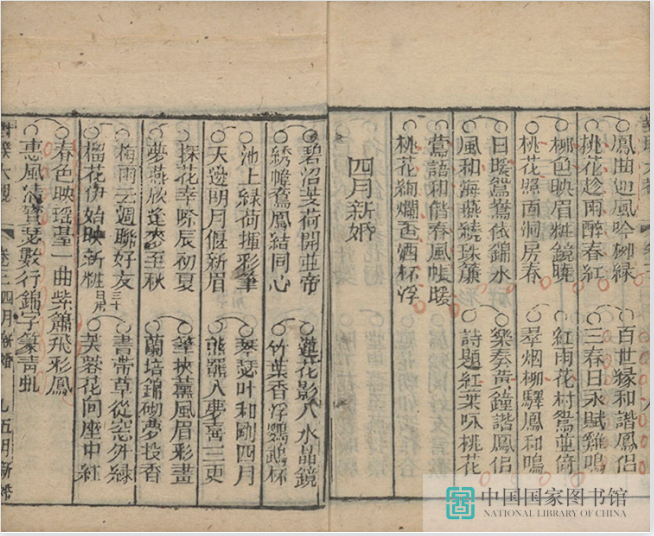 鳳曲迎風吟柳綠 百世緣和諧鳳侶
桃花趁雨醉春紅 三春日永賦雞鳴
柳色映眉粧鏡曉 紅雨花村鴛並倚
桃花照面洞房春 翠烟柳驛鳳和鳴
日暖鴛鴦依錦水 樂奏黃鐘諧鳳侶
風和海燕繞珠簾 詩題紅葉咏桃花
鶯語和偕春風帳暖
桃花絢爛巹酒杯浮
四月新婚
碧沼芰荷開並帝 遊花影入水晶鏡
綉幃鸞鳳結同心 竹葉香浮鸚鵡杯
池上綠荷揮彩筆 琴瑟叶和剛四月
天邊明月偃新眉 熊羆入夢喜三更
探花幸際辰初夏 筆挾薰風眉彩畫
夢燕欣逢麥至秋 蘭培錦砌夢投香
梅雨云週聯好友 書帶草從窓外綠
榴花伊始映新粧 三十日用 芙蓉花向座中紅
春色映瑤臺一曲紫簫飛彩鳳
惠風清寶瑟數行錦字篆青虬
大觀 卷三 四月新婚 九 五月新婚
中国国家图书馆
NATIONAL LIBRARY OF CHINA